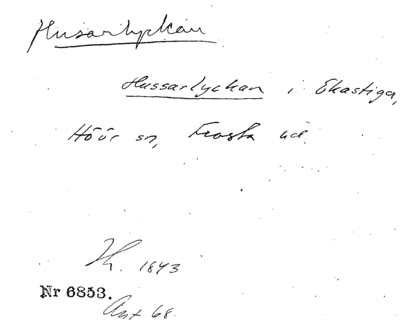 Husarlyckan
Hussarlyckan i Ekastiga,
Höör sn, Frosta hd.
1843
Nr 6853.
Ant 68.